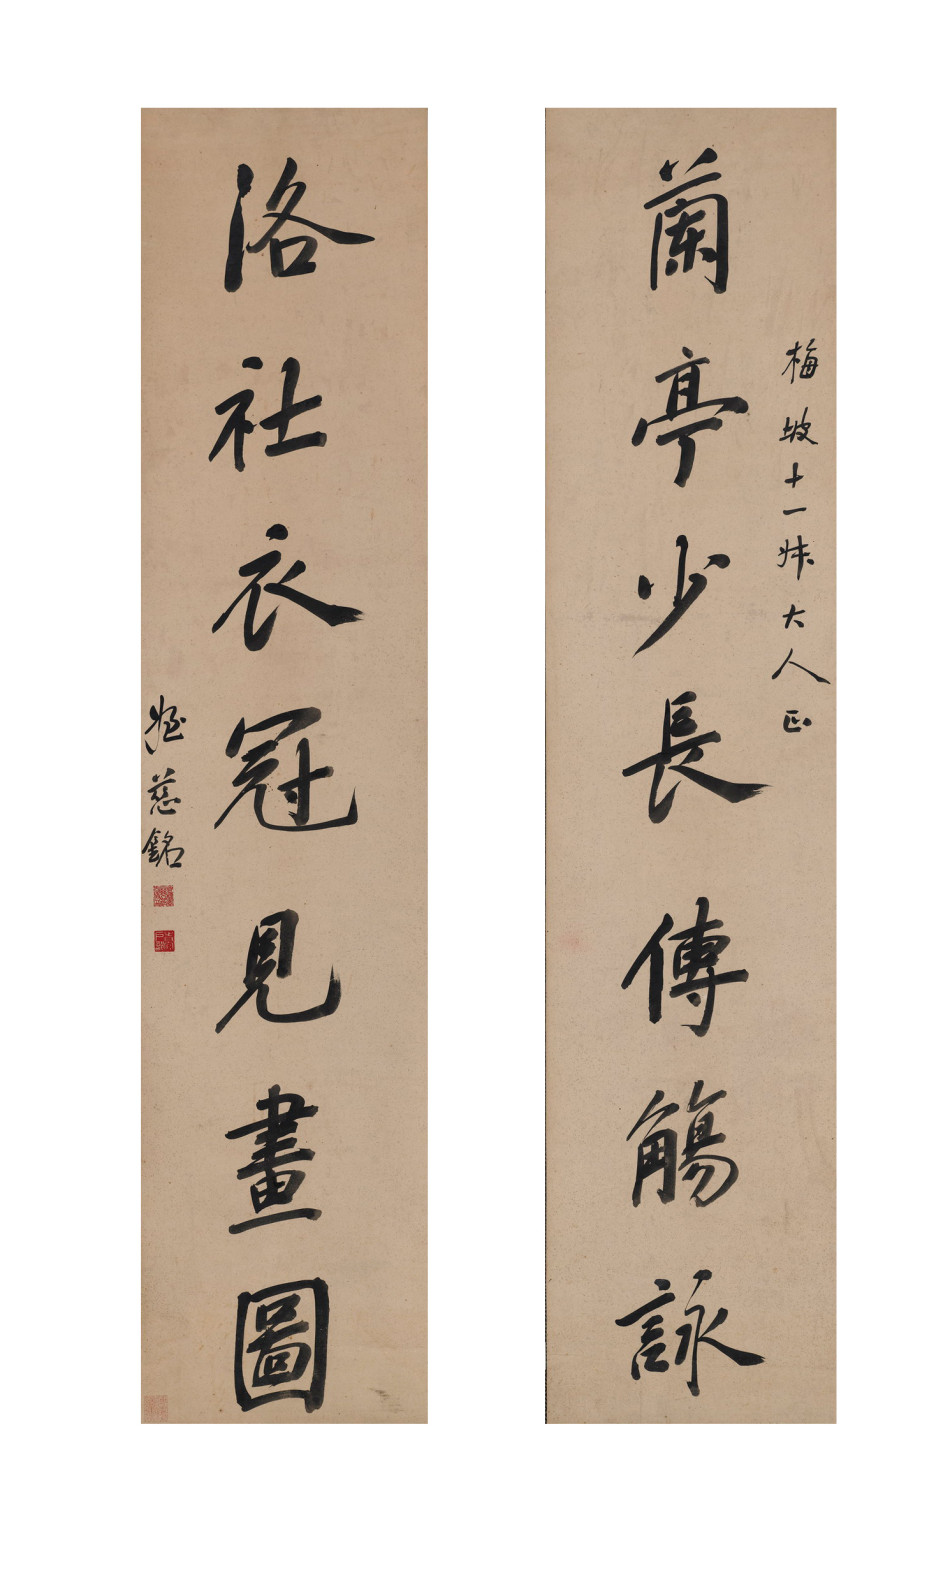 梅坡十一姊大人正
蘭亭少長傳觴詠
洛社衣冠見畫圖
姪慈銘